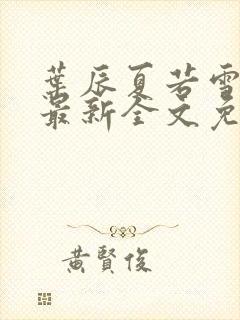 葉辰夏若雪
最新全文免
黃賢俊